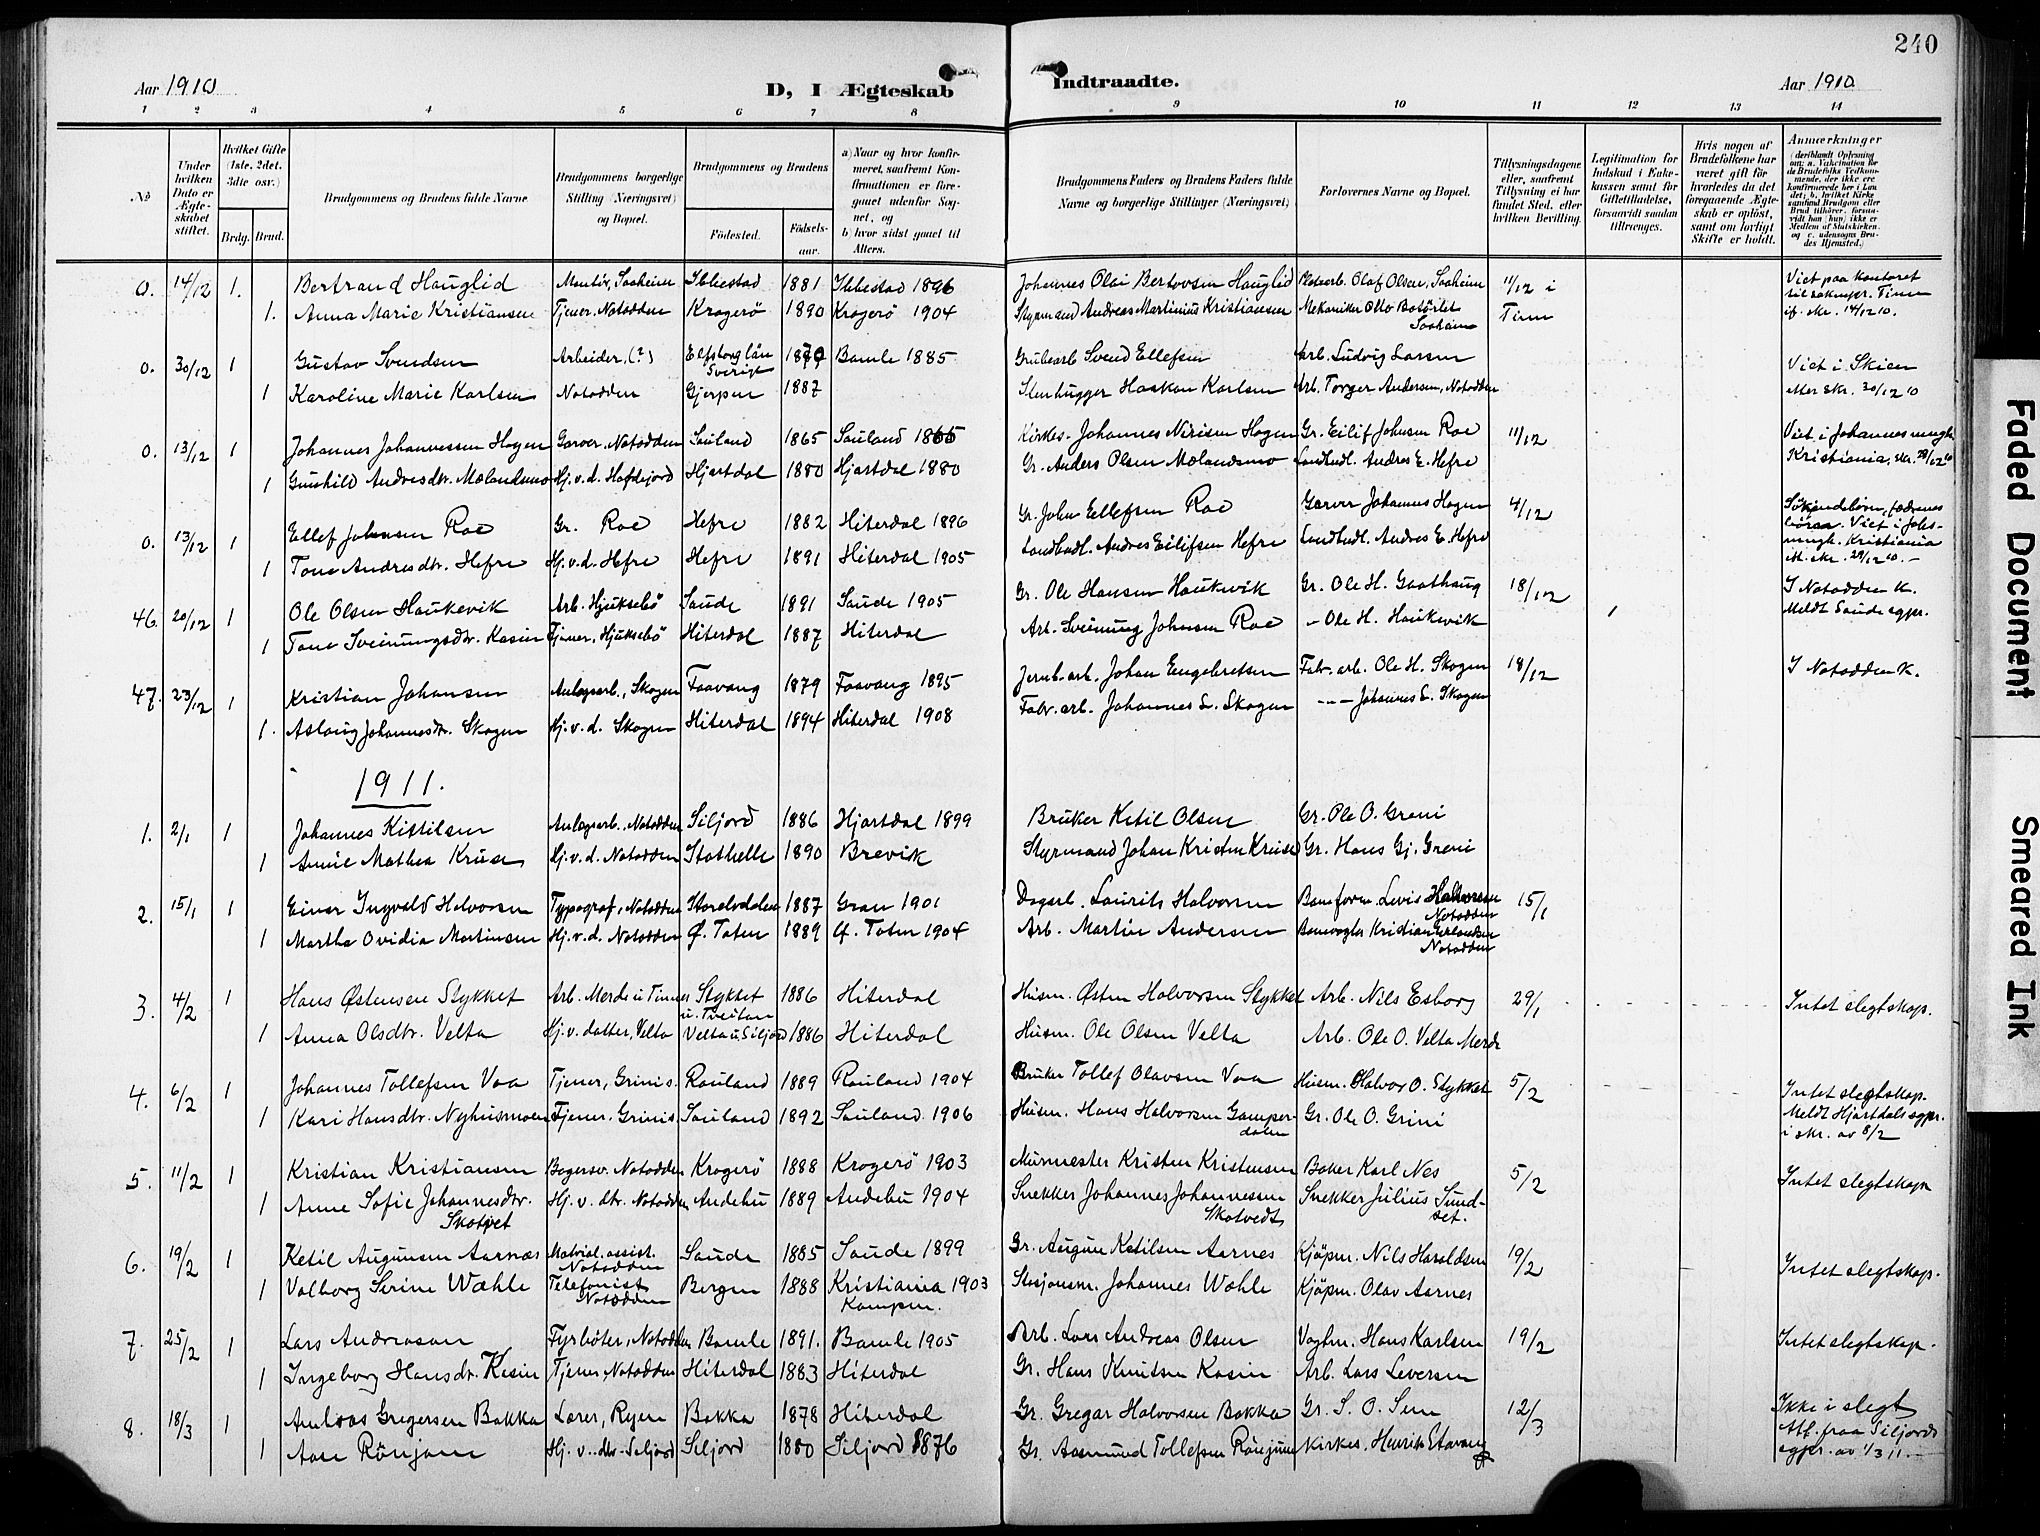 240
Aar 1910
D, I Ægteskab
Indtraadte.
Aar 1910
1 2 3 4 5 6 7 8 9 10 11 12 13 14
No
Under hvilken Dato er Ægteskabet stiftet.
Hvilket Gifte (1ste, 2det, 3die osv.)
Brdg. Brud.
Brudgommens og Brudens fulde Navne.
Brudgommens borgerlige Stilling (Næringsvei) og Bopæl.
Brudgommens og Brudens
Fødested.
Fødselsaar.
a) Naar og hvor konfirmeret, saafremt Konfirmationen er foregaaet udenfor Sognet, og
b) hvor sidst gaaet til Alters.
Brudgommens Faders og Brudens Faders fulde Navne og borgerlige Stillinger (Næringsvei)
Forlovernes Navne og Bopæl.
Tillysningsdagene eller, saafremt Tillysning ei har fundet Sted, efter hvilken Bevilling.
Legitimation for Indskud i Enkekassen samt for Giftetilladelse, forsaavidt saadan tiltrænges.
Hvis nogen af Brudefolkene har været gift før hvorledes da det foregaaende Ægteskab er opløst, samt om lovligt Skifte er holdt.
Anmærkninger
0. 14/12 1. Bertrand Hauglid Montör, Saaheim Ibbestad 1881 Ibbestad 1896 Johannes Olai Bertovsen Hauglid Olaf Olsen, Saaheim 11/12 i Viet paa kontoret
1. Anna Marie Kristiansen Tjener, Notodden Kragerö 1890 Kragerö 1904 Styrmand Andreas Martinius Kristiansen Mekaniker Otto Saaheim Tinn til soknepr. Tinn
if. skr. 14/12 10.
0. 30/12 1 Gustav Svendsen Arbeider, (?) Elfsborg län Sverige 1870 Bamle 1885 Grubearb Svend Ellefsen Arb. Ludvig Larsen Viet i Skien
1 Karoline Marie Karlsen Notodden Gjerpen 1887 Stenhugger Haakon Karlsen Arb. Torger Andersen, Notodden efter skr. 30/12 10
0. 13/12 1 Johannes Johannessen Hagen Garver, Notodden Sauland 1865 Sauland 1865 Kirkes. Johannes Nirisen Hagen Gr. Eilif Johnsen Roe 11/12 Viet i Johannes mngh.
1 Gunhild Andresdtr. Mælandsmo Hj.v.d. Hafdejord Hjartdal 1880 Hjartdal 1880 Gr. Anders Olsen Mælandsmo Landhdl. Andres E. Hefre Kristiania, skr. 28/12 10
0. 13/12 1 Ellef Johnsen Roe Gr. Roe Hefre 1882 Hiterdal 1896 Gr. John Ellefsen Roe Garver Johannes Hagen 4/12 Søskendebørn, fædrenes
1 Tone Andresdtr. Hefre Hj.v.d. Hefre Hefre 1891 Hiterdal 1905 Landhdl. Andres Eilifsen Hefre Landhdl. Andres E. Hefre Viet i Johs-
mngh. Kristiania
itf. skr. 29/12 10. -
46. 20/12 1 Ole Olsen Haukevik Arb. Hjuksebö Saude 1891 Saude 1905 Gr. Ole Hansen Haukevik Gr. Ole H. Gaathaug 18/12 I Notodden K.
1 Tone Sveinungsdtr. Kasin Tjener, Hjuksebö Hiterdal 1887 Hiterdal Arb. Sveinung Johnsen Roe - Ole H. Haukevik 1 Meldt Saude sgpr.
47. 23/12 1 Kristian Johansen Anlægsarb., Skogen Faavang 1879 Faavang 1895 Jernb.arb. Johan Engebretsen Fabr. arb. Ole H. Skogen 18/12 I Notodden K.
1. Aslaug Johannesdtr. Skogen Hj.v.d. Skogen Hiterdal 1894 Hiterdal 1908 Fabr. arb. Johannes L. Skogen - - - Johannes L. Skogen
1911.
1. 2/1 1 Johannes Kittilsen Anlægsarb., Notodden Siljord 1886 Hjartdal 1899 Bruker Ketil Olsen Gr. Ole O. Greni
1 Annie Mathea Kruse Hj.v.d. Notodden Stathelle 1890 Brevik Styrmand Johan Kristen Kruse Gr. Hans Gj. Greni
2. 15/1 1 Einar Ingvald Halvorsen Typograf, Notodden Storelvdalen 1887 Gran 1901 Dagarb. Laurits Halvorsen Baneform. Levis Halvorsen Notodden 15/1
1 Martha Ovidia Martinsen Hj.v.d. Notodden Ø. Toten 1889 Ø. Toten 1904 Arb. Martin Andersen Banevogter Kristian Erlandsen Notodden
3. 4/2 1 Hans Østensen Stykket Arb. Merde u Tinnes Stykket u. Tveitan 1886 Hiterdal Husm. Østen Halvorsen Stykket Arb. Nils Esborg 29/1 Intet slegtskap.
1 Anna Olsdtr. Velta Hj.v. datter, Velta Velta u Siljord 1886 Hiterdal Husm. Ole Olsen Velta Arb. Ole O. Velta Merde
4. 6/2 1 Johannes Tollefsen Vaa Tjener, Grinis. Rauland 1889 Rauland 1904 Bruker Tollef Olavsen Vaa Husm. Halvor O. Stykket 5/2 Intet slegtskap.
1 Kari Hansdtr. Nyhusmoen Tjener, Grinis. Sauland 1892 Sauland 1906 Husm. Hans Halvorsen Gamperdalen Gr. Ole O. Grini Meldt Hjartdals sgpr.
i skr. av 8/2
5. 11/2 1 Kristian Kristiansen Bagersv. Notodden Kragerö 1888 Kragerö 1903 Murmester Kristen Kristensen Baker Karl Nes 5/2 Intet slegtskap
1 Anne Sofie Johannesdtr. Skotvet Hj. v. dtr. Notodden Andebu 1889 Andebu 1904 Snekker Johannes Johannessen Skotvedt Snekker Julius Sundset.
6. 19/2 1 Ketil Augunsen Aarnæs Matrial.assist. Notodden Saude 1885 Saude 1899 Gr. Augun Ketilsen Aarnes Kjöpm. Nils Haraldsen 19/2 Intet slegtskap.
1 Valborg Serine Wæhle Telefonist Notodden Bergen 1888 Kristiania 1903 Kampen. Stasjonsm. Johannes Wæhle Kjöpm. Olav Aarnes
7. 25/2 1 Lars Andreasen Fyrböter, Notodden Bamle 1891. Bamle 1905 Arb. Lars Andreas Olsen Vagtm. Hans Karlsen 19/2 Intet slegtskap.
1 Ingeborg Hansdtr. Kasin Tjener, Notodden Hiterdal 1883 Hiterdal Gr. Hans Knutsen Kasin Arb. Lars Leversen
8. 18/3 1 Gregersen Bakka Lærer, Ryen Bakka 1878 Hiterdal Gr. Gregar Halvorsen Bakka Gr. S. O. Sem 12/3 Ikke i slegt
1 Aase Rönjom Hj. v. dtr. Seljord Siljord 1880 Siljord 1876 Gr. Aasmund Tollefsen Rönjum Kirkes. Henrik Att. fraa Siljords
sgpr. av 1/3 11. -
Faded Document
Smeared Ink